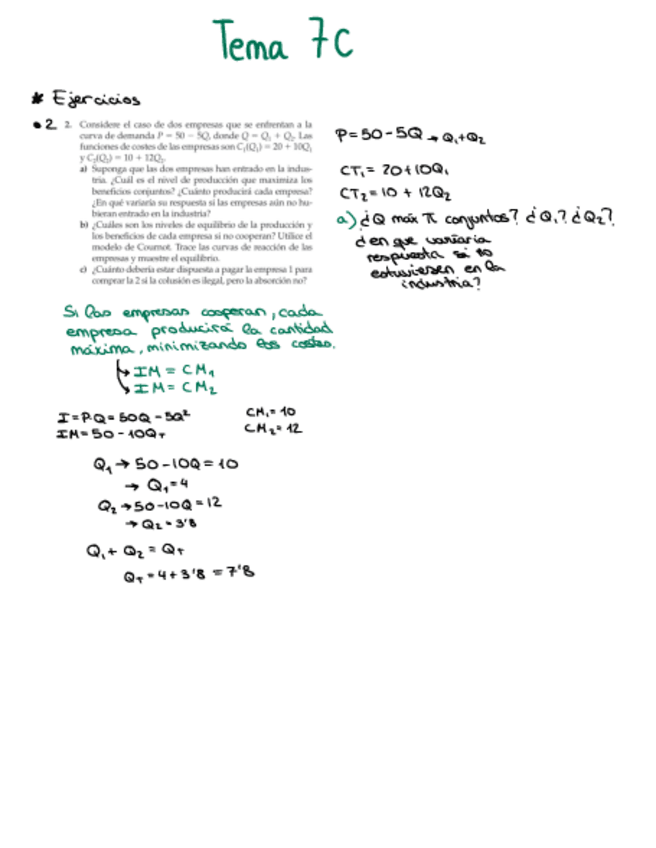 Tema 7C
* Ejercicios
• 2 2. Considere el caso de dos empresas que se enfrentan a la
curva de demanda P = 50 − 5Q, donde Q = Q₁ + Q₂. Las
funciones de costes de las empresas son C₁(Q₁) = 20 + 10Q₁
y C₂(Q₂) = 10 + 12Q₂.
a) Suponga que las dos empresas han entrado en la indus-
tria. ¿Cuál es el nivel de producción que maximiza los
beneficios conjuntos? ¿Cuánto producirá cada empresa?
¿En qué variaría su respuesta si las empresas aún no hu-
bieran entrado en la industria?
b) ¿Cuáles son los niveles de equilibrio de la producción y
los beneficios de cada empresa si no cooperan? Utilice el
modelo de Cournot. Trace las curvas de reacción de las
empresas y muestre el equilibrio.
c) ¿Cuánto debería estar dispuesta a pagar la empresa 1 para
comprar la 2 si la colusión es ilegal, pero la absorción no?
P = 50 - 5Q → Q₁ + Q₂
CT₁ = 20 + 10Q₁
CT₂ = 10 + 12Q₂
a) ¿Q máx π conjuntos? ¿Q₁? ¿Q₂?
¿en que variaria
respuesta si no
estuviesen en la
industria?
Si las empresas cooperan, cada
empresa producirá la cantidad
máxima, minimizando los costes.
↳ IM = CM₁
↳ IM = CM₂
I = P·Q = 50Q - 5Q²
IM = 50 - 10QT
CM₁ = 10
CM₂ = 12
Q₁ → 50 - 10Q = 10
→ Q₁ = 4
Q₂ → 50 - 10Q = 12
→ Q₂ = 3'8
Q₁ + Q₂ = QT
QT = 4 + 3'8 = 7'8